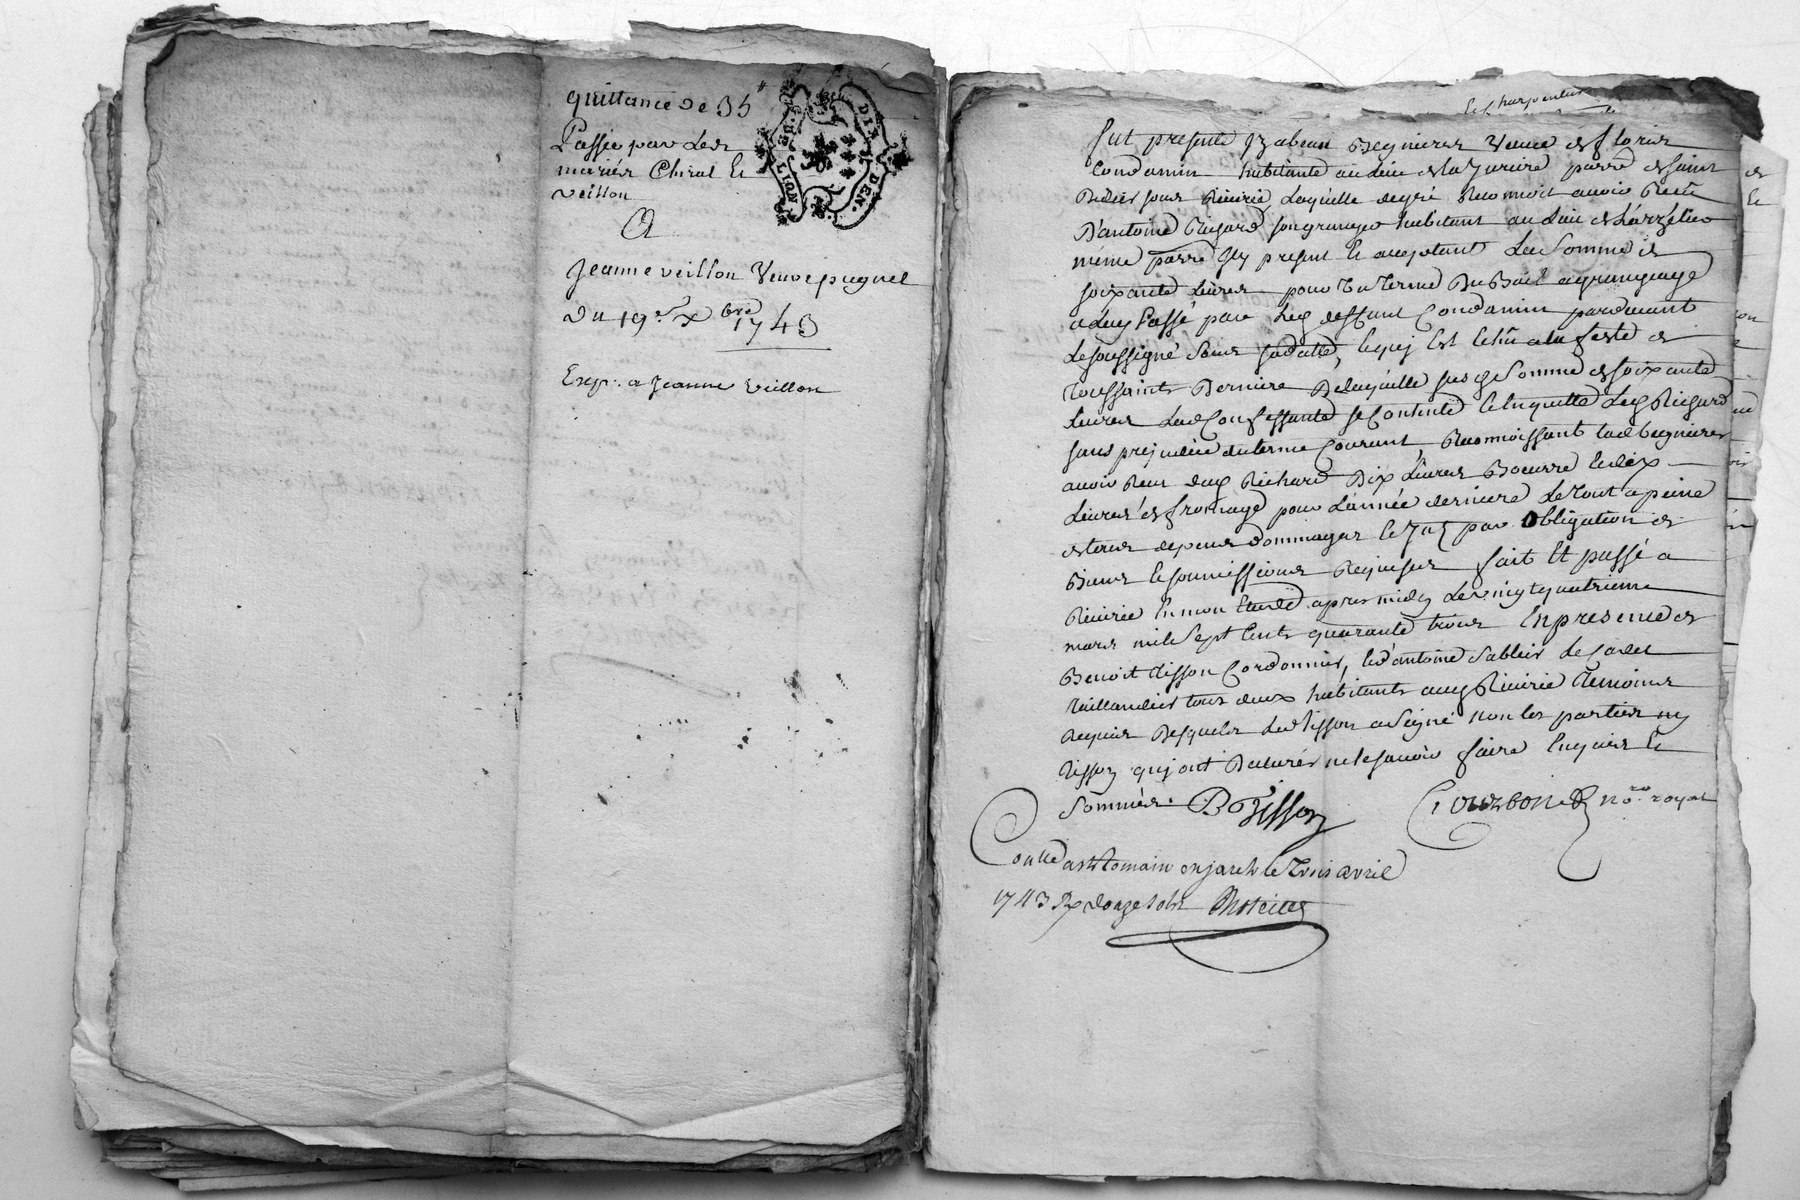 quittance de 35#
Passée par Les
mariés Chiral Et
veillon
A
Jeanne veillon Veuve pugnet
du 19e Xbre 1743
Exp. a Jeanne veillon
GEN. DE LION
DIX DEN.
fut presente Yzabeau Regnieres Veuve de
Condamin habitante au lieu de la parre de saint
Didier sous Rivirie, Laquelle degré Reconnoit avoir Receu
D'antoine Richard son granger habitant au Lieu de
même parre Icy present Et acceptant La Somme de
soixante Livres pour Un Terme Du Bail a grangeage
a Luy Passé par Led deffunt Condamin pardevant
Le soussigné Sous sa datte, lequel Est Echu a la feste de
Toussaints Derniere De laquelle susde Somme de soixante
Livres Lade Confessante se Contente Et en quitte Led Richard
sans prejudice du terme Courant, Reconnoissant lade Regnieres
avoir Receu dud Richard Dix Livres Beurre Et dix
Livres de fromage pour L'année derniere Le Tout a peine
de tous depens dommages Et par Obligation de
Biens Et soumissions Requises fait Et passé a
Rivirie En mon Etude apres midy Le vingt quatrieme
mars mil Sept Cents quarante trois En presence de
Benoit Tisson Cordonnier, Et d'antoine
tous deux habitants aud Rivirie Temoins
Requis Desquels Led Tisson a Signé non les parties ny
qui ont Declarés ne le sçavoir faire Enquis Et
Sommés. B Tisson nore royal
Conllé a St Romain en jarest le Trois avril
1743 Rx douze sols